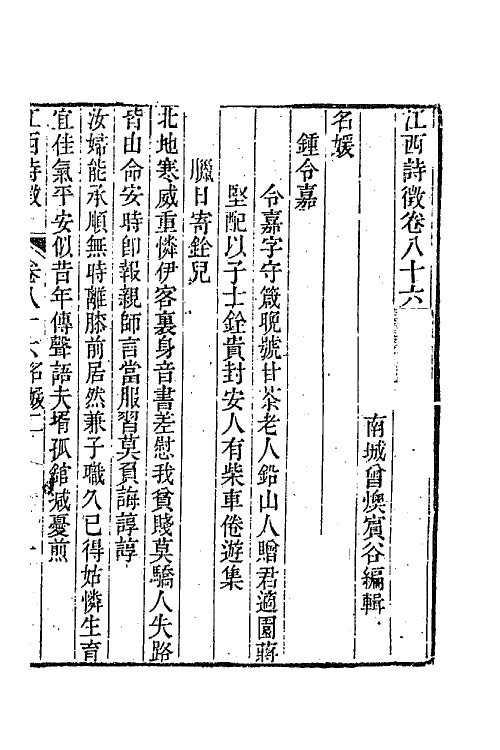 江西詩徵卷八十六
南城曾燠賓谷編輯
名媛
鍾令嘉
令嘉字守箴晚號甘荼老人鉛山人贈君適園蔣
堅配以子士銓貴封安人有柴車倦遊集
臘日寄銓兒
北地寒威重憐伊客裏身音書差慰我貧賤莫驕人失路
皆由命安時即報親師言當服習莫負誨諄諄
汝婦能承順無時離膝前居然兼子職久已得姑憐生育
宜佳氣平安似昔年傳聲語夫壻孤館減憂煎
江西詩徵 卷八十六名媛 一